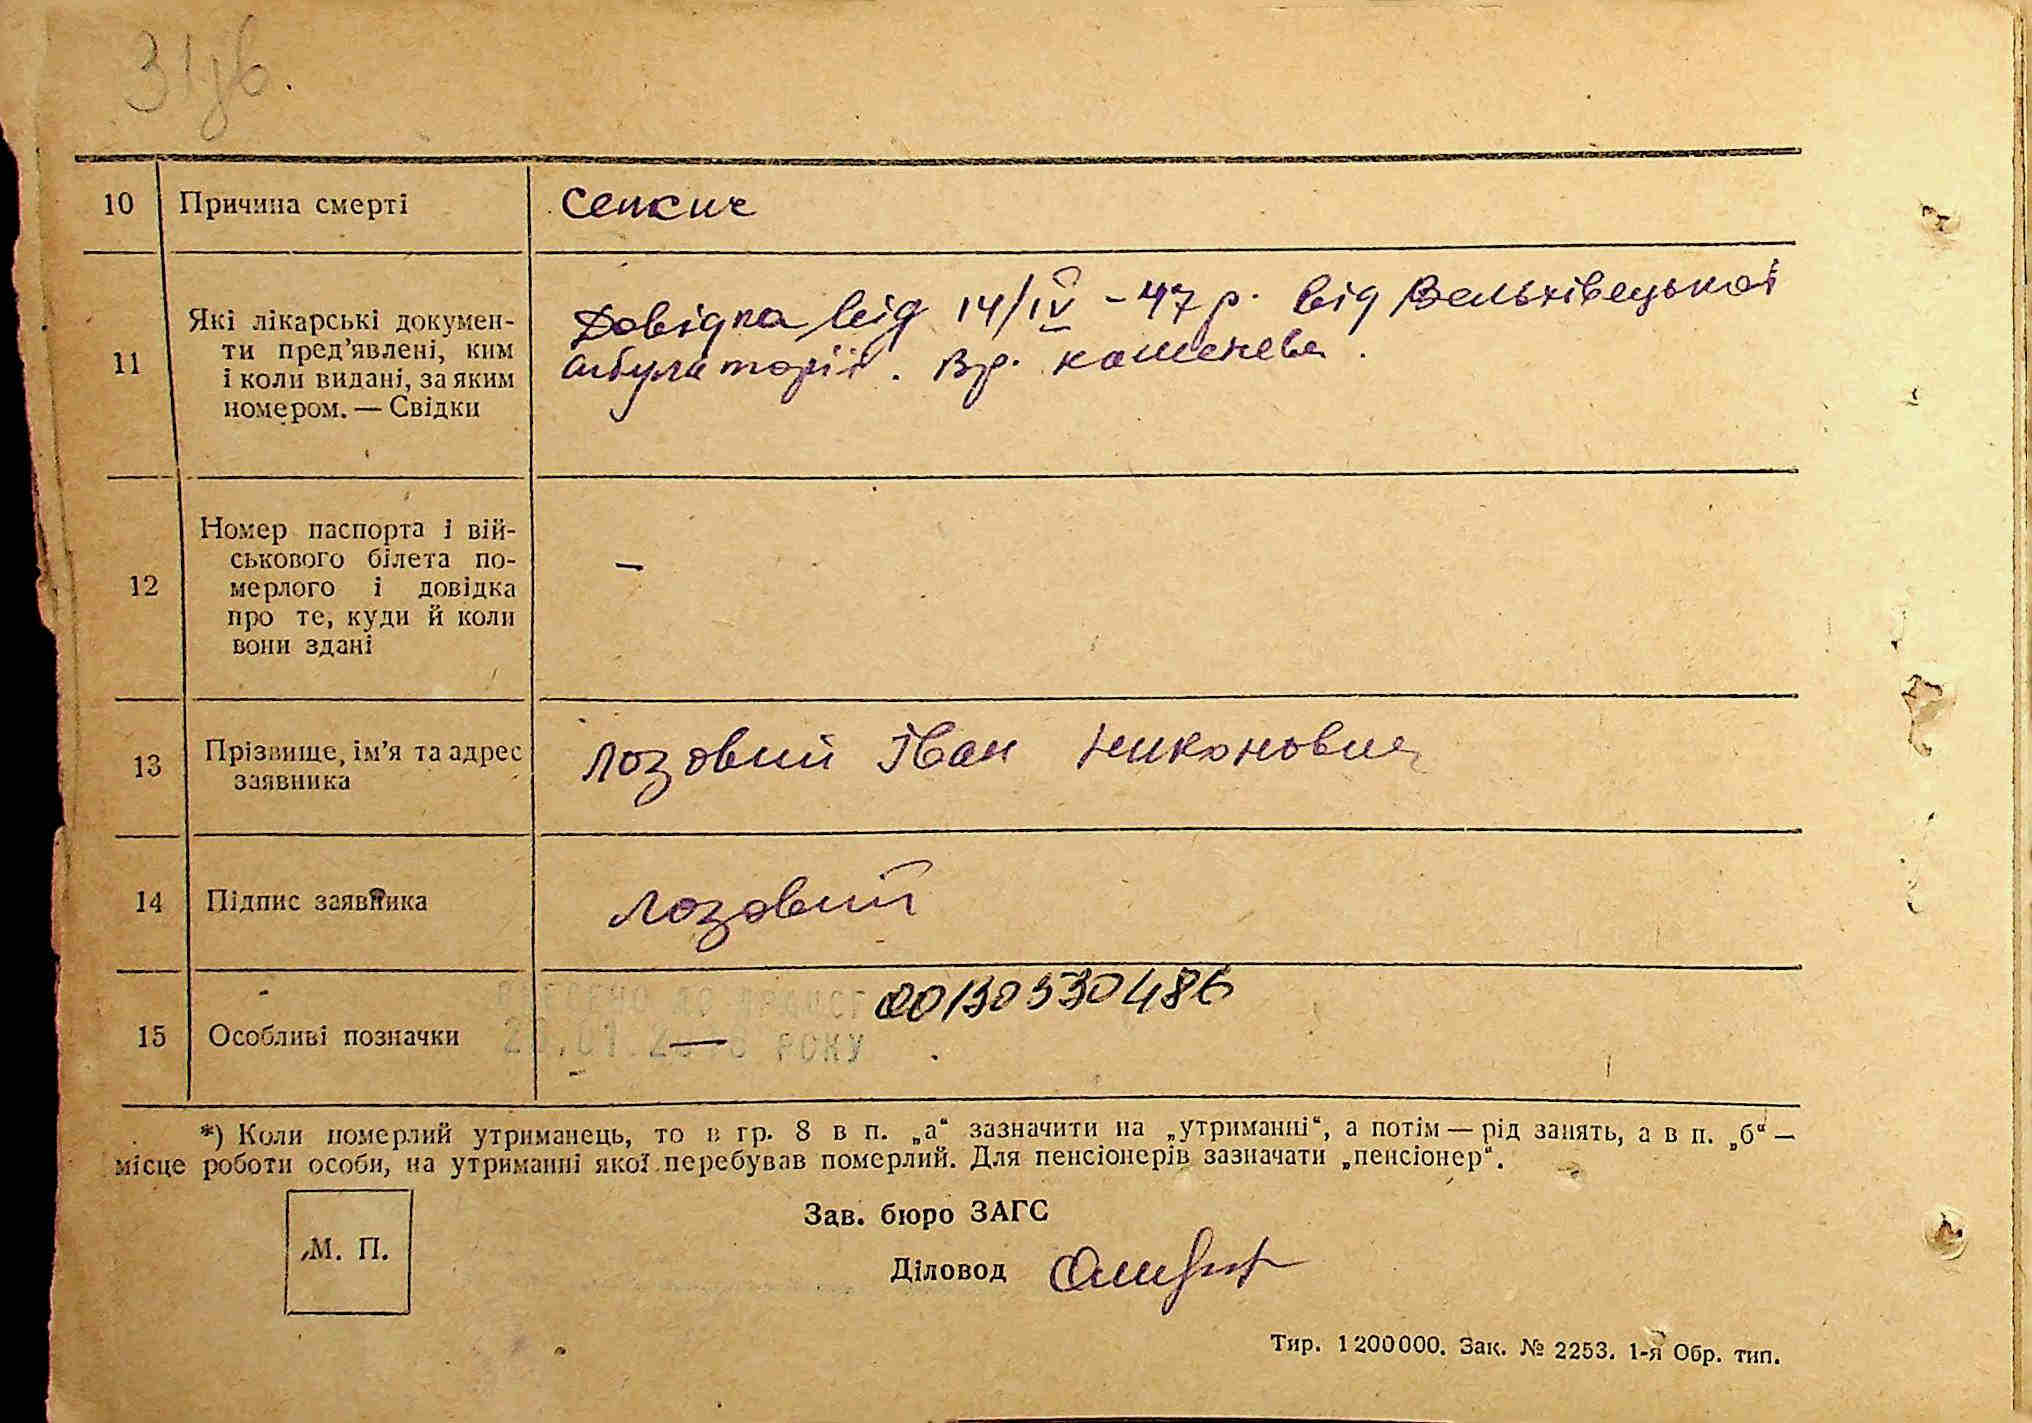 31 зв.
10 Причина смерті Сепсис
11 Які лікарські докумен-
ти пред'явлені, ким
і коли видані, за яким
номером. — Свідки
Довідка від 14/IV – 47 р. від Вельхівецької
амбулаторії. Вр. Кашенева.
12 Номер паспорта і вій-
ськового білета по-
мерлого і довідка
про те, куди й коли
вони здані
–
13 Прізвище, ім'я та адрес
заявника
Лозовий Іван Никонович
14 Підпис заявника Лозовий
15 Особливі позначки
00130530486
—
РОКУ
*) Коли померлий утриманець, то в гр. 8 в п. „а“ зазначити на „утриманні“, а потім — рід занять, а в п. „б“ —
місце роботи особи, на утриманні якої перебував померлий. Для пенсіонерів зазначати „пенсіонер“.
М. П.
Зав. бюро ЗАГС
Діловод
Тир. 1200000. Зак. № 2253. 1-я Обр. тип.